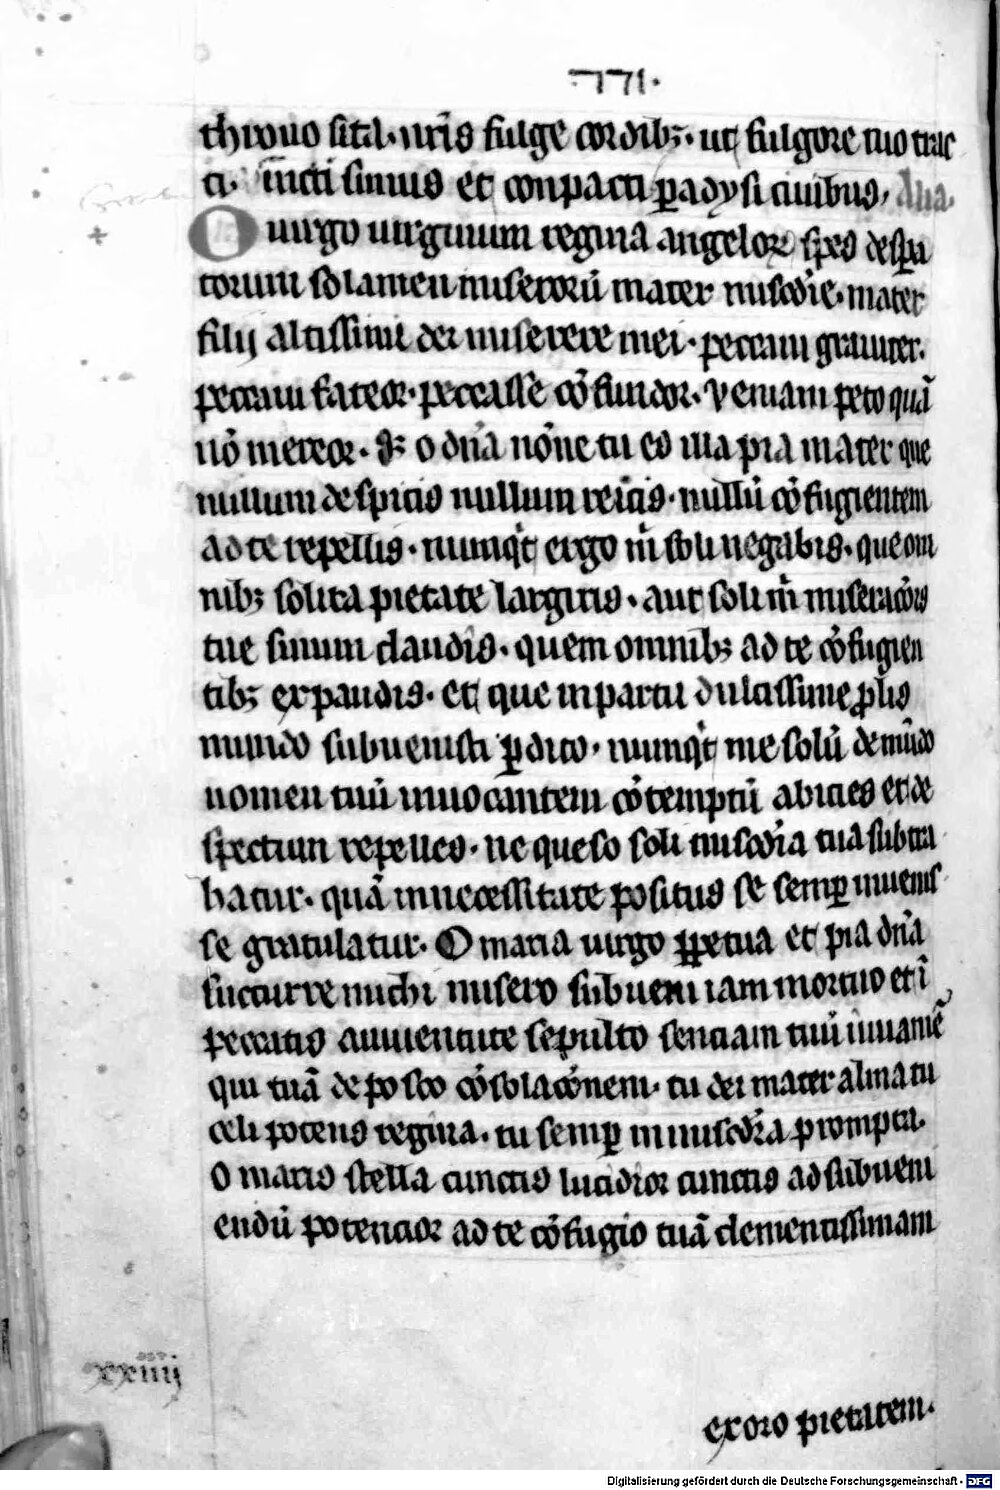 throno sita. nr̄is fulge cordibꝫ. ut fulgore tuo trac
ti. iūcti simus et conpacti ꝑadysi ciuibus. Alia.
O uirgo uirginum regina angeloꝝ spes despa
torum solamen miserorū mater misc̄die. mater
filij altissimi dei miserere mei. peccaui grauiter.
peccaui fateor. peccasse cōfundor. veniam peto quā
nō mereor. sꝫ o dn̄a nōne tu es illa pia mater que
nullum despicis nullum reicis. nullū cōfugientem
ad te repellis. numqͥt ergo m̄ soli negabis. que om
nibꝫ solita pietate largiris. aut soli m̄ miseracōis
tue sinum claudis. quem omnibꝫ ad te cōfugien
tibꝫ expandis. et que in partu dulcissime ꝓlis
mundo subuenisti ꝑdito. numqͥt me solū de mūdo
nomen tuū inuocantem cōtemptū abicies et de
spectum repelles. ne queso soli misc̄dia tua subtra
hatur. quā in necessitate positus se semꝑ inuenis
se gratulatur. O maria uirgo ꝑpetua et pia dn̄a
succurre michi misero subueni iam mortuo et ī
peccatis
sepulto senciam tuū iuuamē
qui tuā deposco cōsolacōnem. tu dei mater alma tu
celi potens regina. tu semꝑ in misc̄dia prompta.
O maris stella cunctis lucidior cunctis ad subueni
endū potencior ad te cōfugio tuā clementissimam
exoro pietatem.
xxiiij
Digitalisierung gefördert durch die Deutsche Forschungsgemeinschaft - DFG